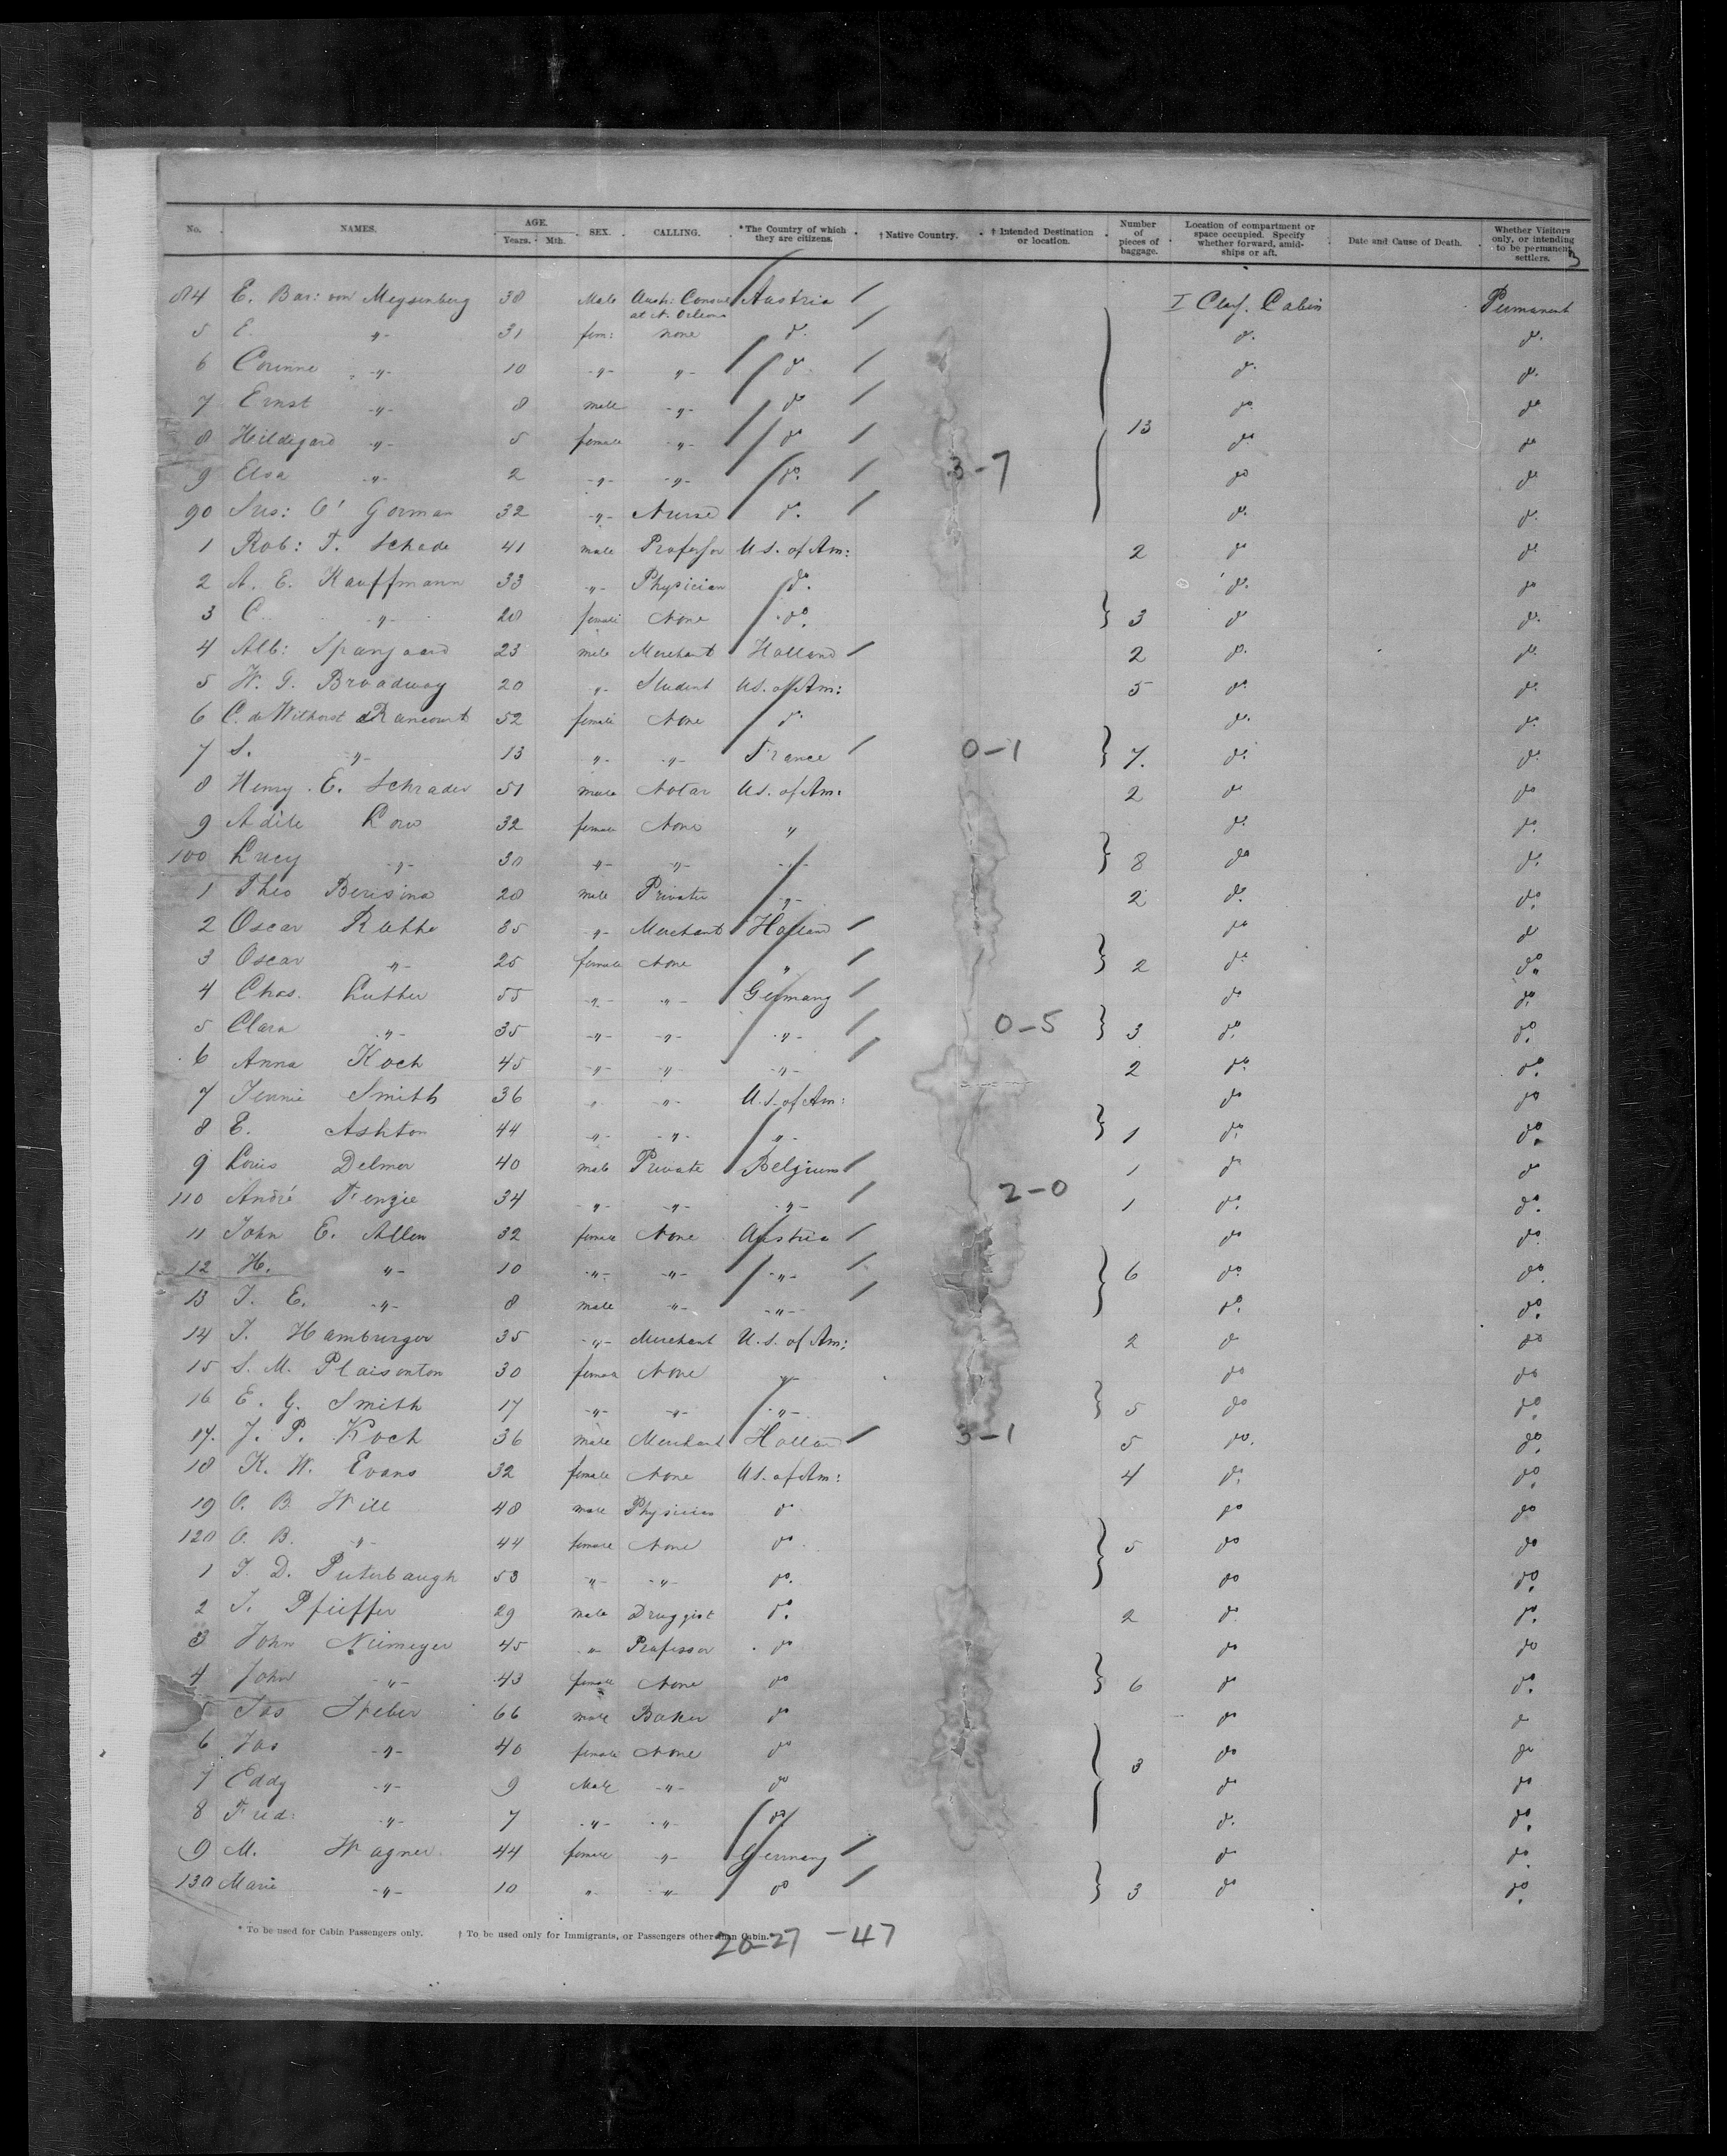 3
No. NAMES. AGE. Years. Mth. SEX. CALLING. *The Country of which they are citizens. †Native Country. †Intended Destination or location. Number of pieces of baggage. Location of compartment or space occupied. Specify whether forward, amidships or aft. Date and Cause of Death. Whether Visitors only, or intending to be permanent settlers.
84 E. Bar: von Meysenberg 38 Male Austr: Consul at N. Orleans Austria I Class. Cabin Permanent
5 E. -"- 31 fem: none do. do. do.
6 Corinne -"- 10 -"- -"- do. do. do.
7 Ernst -"- 8 male -"- do do do
8 Hildegard -"- 5 female -"- do 13 do. do
9 Elsa -"- 2 -"- -"- do. 3-7 do do
90 Sus: O'Gorman 32 -"- Nurse do. do. do.
1 Rob: T. Schade 41 male Professor U.S. of Am: 2 do do
2 A. E. Kauffmann 33 -"- Physician do. do. do
3 C. -"- 28 female None do. 3 do do.
4 Alb: Spanjaard 23 male Merchant Holland 2 do. do.
5 W. G. Broadway 20 -"- Student U.S. of Am: 5 do do.
6 C. de Wilhorst de Rancourt 52 female None do. do. do.
7 S. -"- 13 -"- -"- France 0-1 7. do. do.
8 Henry E. Schrader 51 male Notar U.S. of Am: 2 do do
9 Adele Low 32 female None " do. do.
100 Lucy -"- 30 -"- -"- -"- 8 do do.
1 Theo Berisina 28 male Privatier -"- 2 do. do.
2 Oscar 35 -"- Merchant Holland do do
3 Oscar -"- 25 female None " 2 do do.
4 Chas. Luther 55 -"- -"- Germany do do.
5 Clara -"- 35 -"- -"- -"- 0-5 3 do. do.
6 Anna Koch 45 -"- -"- -"- 2 do. do.
7 Jennie Smith 36 " -"- U.S. of Am: do do
8 E. Ashton 44 -"- -"- -"- 1 do. do.
9 Louis Delmer 40 male Private Belgium 1 do do
110 André 34 -"- -"- -"- 2-0 1 do. do.
11 John E. Allen 32 female None Austria do do.
12 H. -"- 10 -"- -"- -"- 6 do. do.
13 J. E. -"- 8 male -"- -"- do. do.
14 J. Hamburger 35 -"- Merchant U.S. of Am: 2 do do
15 S. M. Plaisonton 30 female None -"- do do
16 E. G. Smith 17 -"- -"- -"- 5 do do.
17. J. P. Koch 36 male Merchant Holland 3-1 5 do. do.
18 K. W. Evans 32 female None U.S. of Am: 4 do. do.
19 O. B. Will 48 male Physician do do do
120 O. B. -"- 44 female None do. 5 do do
1 J. D. Puterbaugh 53 -"- -"- do. do do.
2 J. Pfeiffer 29 male Druggist do. 2 do do.
3 John Niemeyer 45 -"- Professor do do do
4 John -"- 43 female None do 6 do do.
5 Jos Weber 66 male Baker do do do
6 Jos -"- 40 female None do 3 do do
7 Eddy -"- 9 Male -"- do do do
8 Fred: -"- 7 -"- -"- do do. do.
9 M. Wagner 44 female -"- Germany do do.
130 Marie -"- 10 " -"- do 3 do do.
* To be used for Cabin Passengers only. † To be used only for Immigrants, or Passengers other than Cabin.
20-27 -47